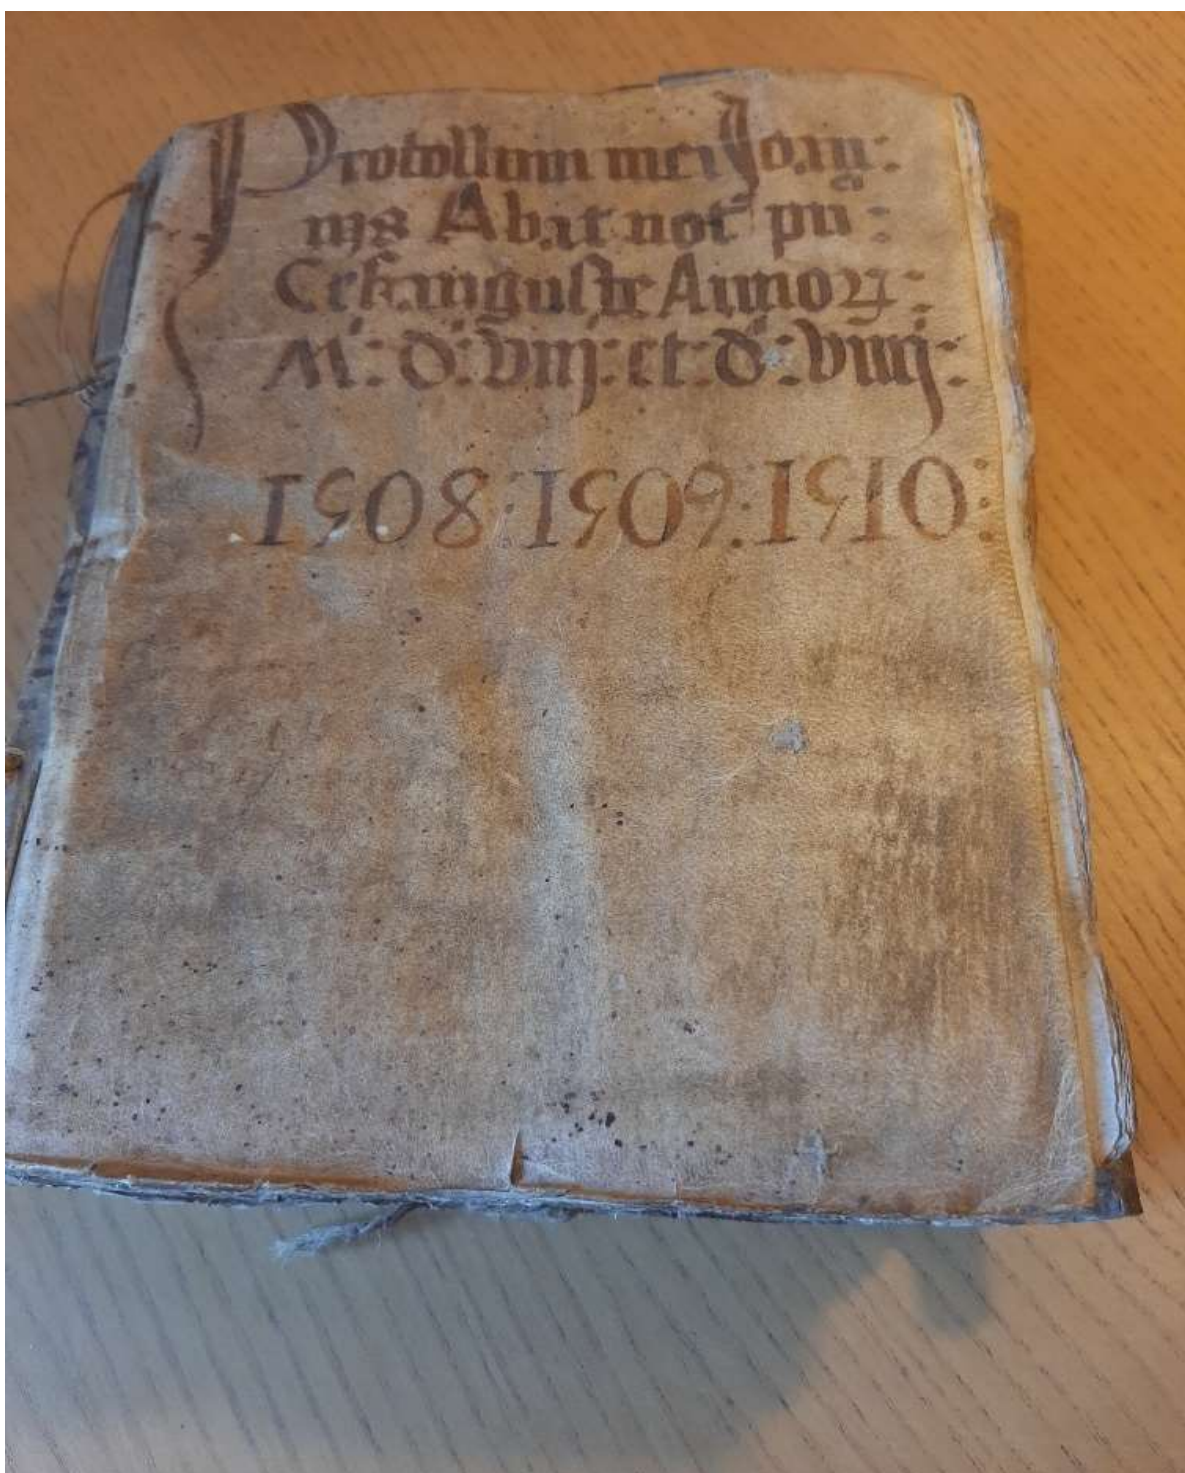 Protocollum mei Joan:
nis Abat not pu:
Cesarauguste Annoꝝ:
M: D: viij: et: D: viiij:
1508: 1509: 1510: